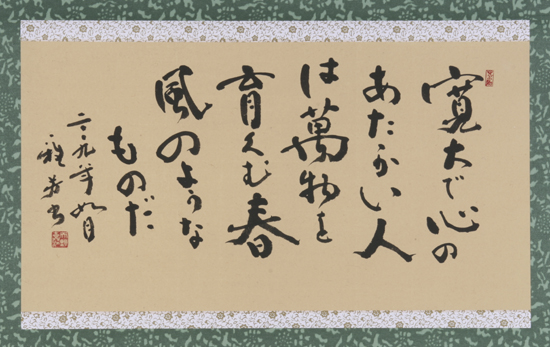 寛大で心の
あたたかい人
は萬物を
育くむ春
風のような
ものだ
二〇一九年如月